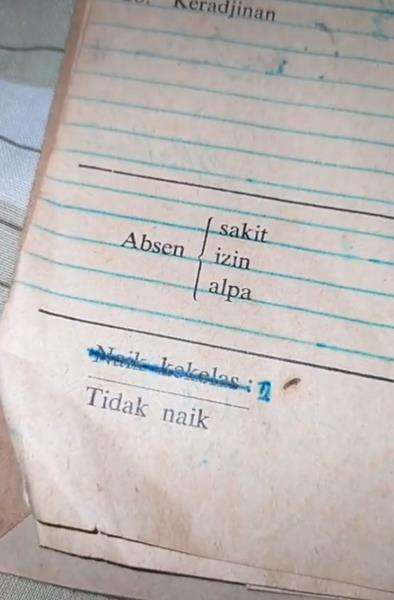 Keradjinan
Absen { sakit
izin
alpa
Naik kekelas : 2
Tidak naik